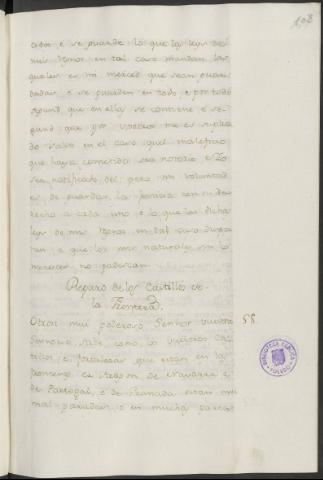 108
cador e se guarde lo que las leyes de
mis Regnos en tal caso mandan las
quales es mi merced que sean guar
dadas e se guarden en todo e por todo
segund que en ellas se contiene e se
gund que por vosotros me es suplica
do salvo en el caso quel maleficio
que haya cometido sea notorio e Yo
sea notificado del pero mi voluntad
es de guardar la justicia e su dere
recho a cada uno e lo que las dichas
leyes de mis Regnos en tal caso dispo
nen e que los mis naturales sin lo
merecer no padezcan
Reparo de los Castillos de
la Frontera.
Otrosi mui poderoso Señor vuestra 58.
Señoria sabe como los vuestros cas
tillos e fortalezas que estan en las
fronteras de Aragon de Navarra e
de Portogal, e de Granada estan mui
mal parados, e en muchas partes
BIBLIOTECA PUBLICA
TOLEDO